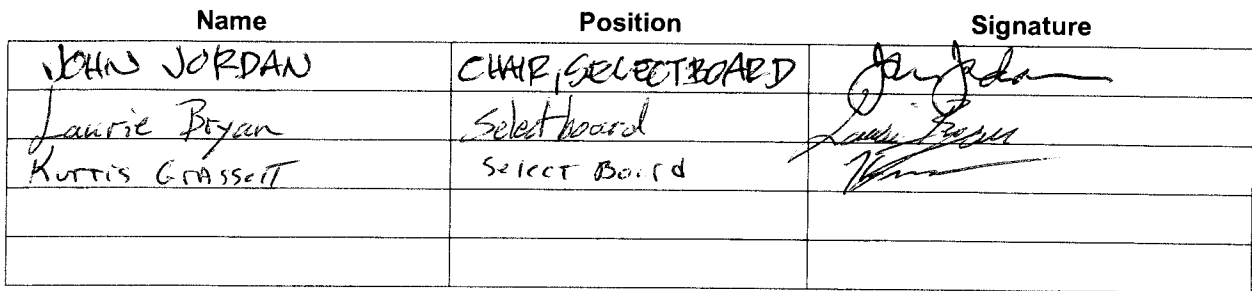 Name Position Signature
JOHN JORDAN CHAIR, SELECTBOARD John Jordan
Laurie Bryan Selectboard Laurie Bryan
KURTIS GRASSETT Select Board